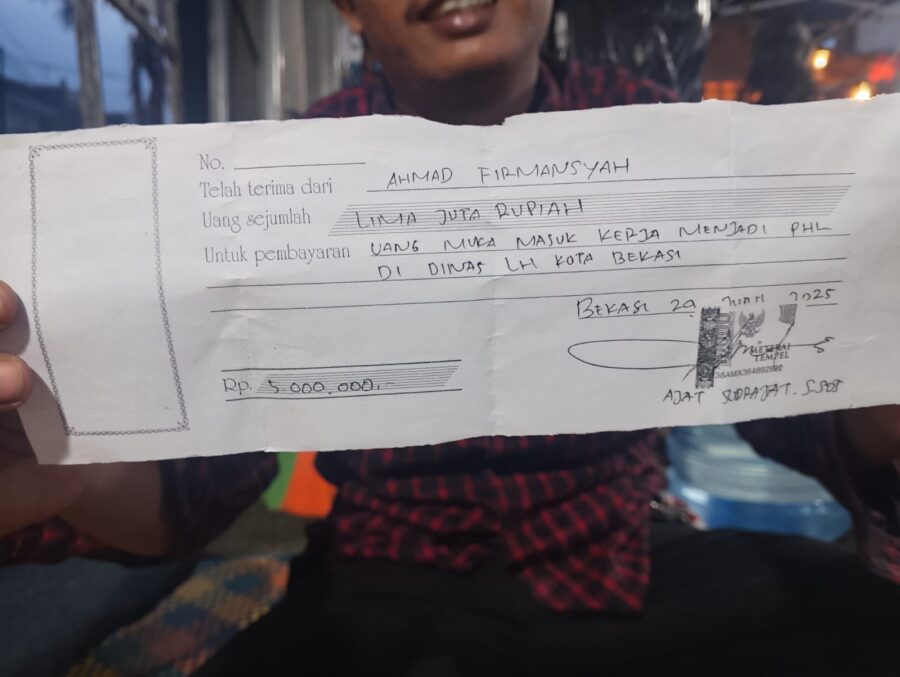 No.
Telah terima dari AHMAD FIRMANSYAH
Uang sejumlah LIMA JUTA RUPIAH
Untuk pembayaran UANG MUKA MASUK KERJA MENJADI PHL
DI DINAS LH KOTA BEKASI
BEKASI 29 2025
METERAI
TEMPEL
Rp. 5.000.000.-
AJAT SUDRAJAT. S.SOS